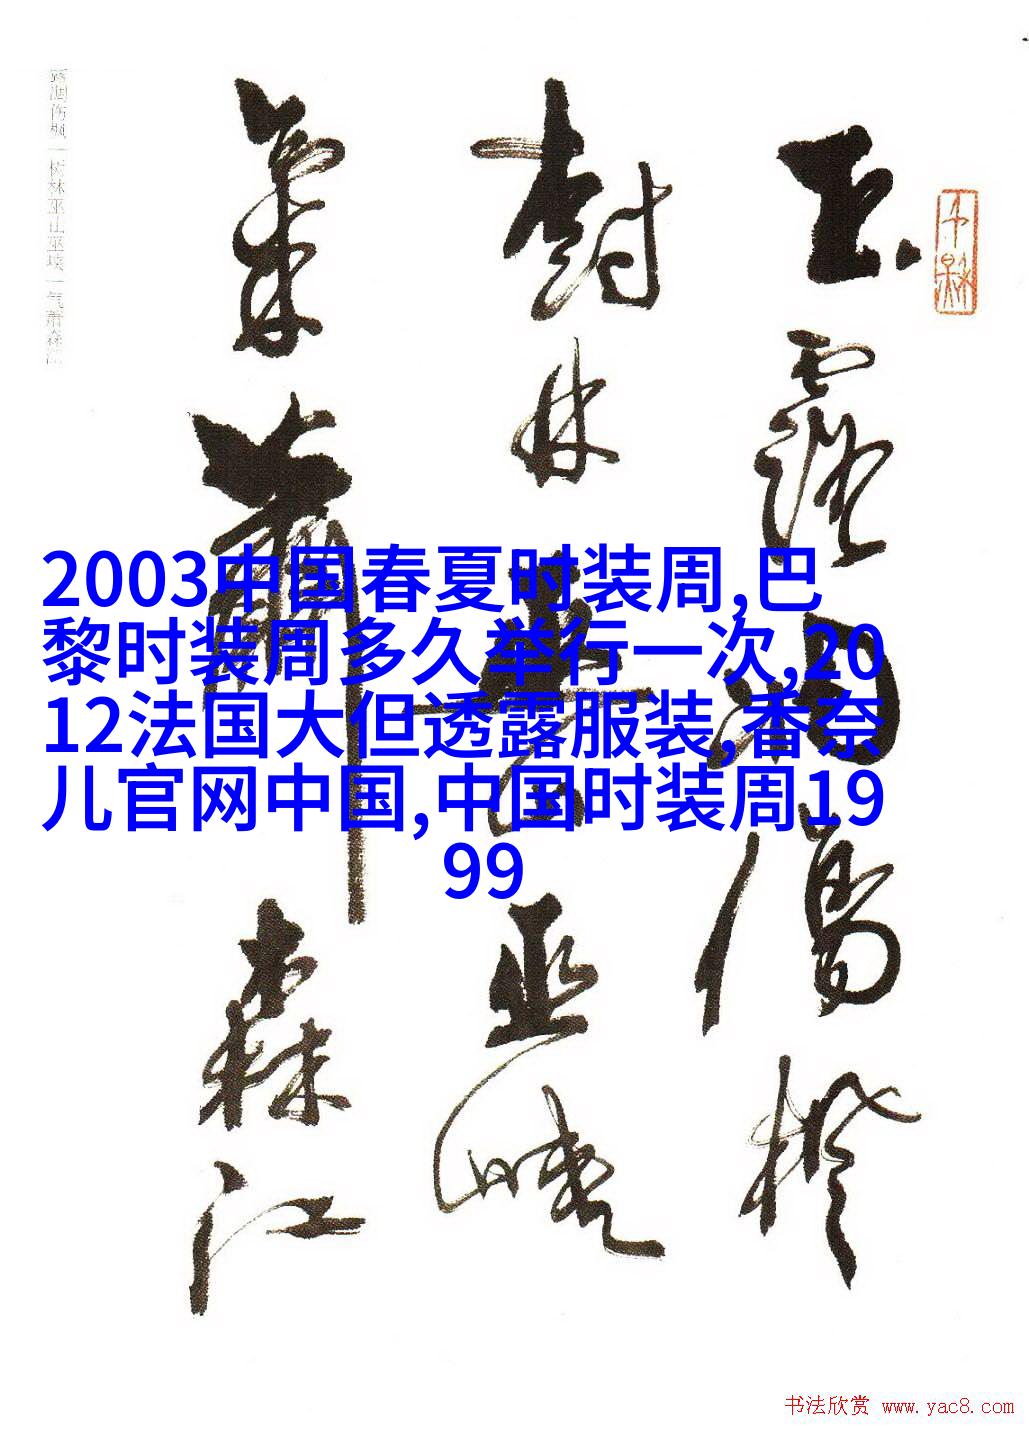 玉露凋傷楓
樹林巫山巫峽
氣蕭森江
露凋伤枫｜树林巫山巫峡｜气萧森江
2003中国春夏时装周,巴
黎时装周多久举行一次,20
12法国大但透露服装,香奈
儿官网中国,中国时装周19
99
书法欣赏 www.yac8.com